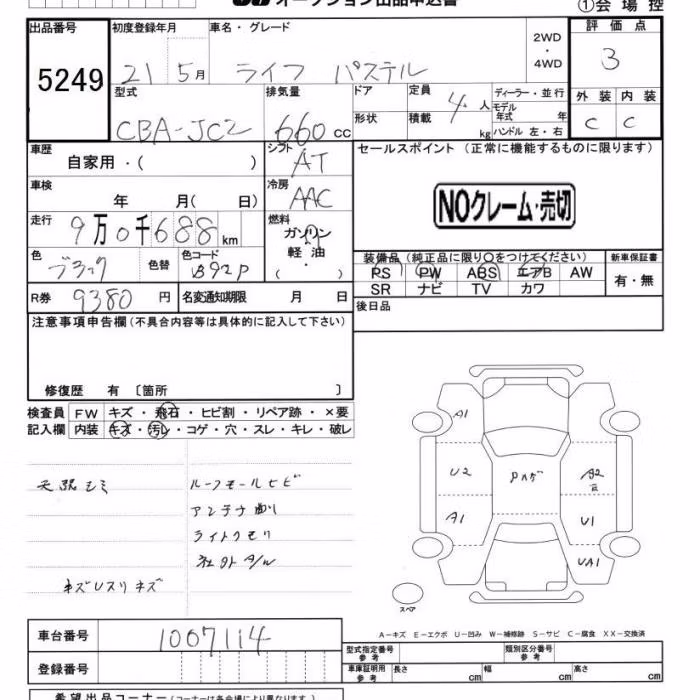 オークション出品申込書
①会場控
出品番号 初度登録年月 車名・グレード 2WD・4WD 評価点
5249 21 5月 ライフ パステル 3
型式 排気量 ドア 定員 4人 ディーラー・並行 外装 内装
CBA-JC2 660cc 形状 積載 kg モデル年式 年 ハンドル 左・右 C C
車歴 自家用・( ) シフト AT セールスポイント（正常に機能するものに限ります）
車検 年 月( 日) 冷房 AAC NOクレーム・売切
走行 9万0千688km 燃料 ガソリン 軽油・
色 ブラック 色替 色コード B92P
装備品（純正品に限り○をつけてください） 新車保証書
PS PW ABS エアB AW 有・無
SR ナビ TV カワ
R券 9380円 名変通知期限 月 日 後日品
注意事項申告欄（不具合内容等は具体的に記入して下さい）
修復歴 有 〔箇所 〕
検査員 FW キズ・飛石・ヒビ割・リペア跡・×要
記入欄 内装 キズ・汚レ・コゲ・穴・スレ・キレ・破レ
天張シミ ルーフモールヒビ
アンテナ
ライトクモリ
社外A/W
A1
U2 Pハゲ A2
A1 U1
UA1
スペア
A－キズ E－エクボ U－凹み W－補修跡 S－サビ C－腐食 XX－交換済
車台番号 1007114
型式指定番号 参考 類別区分番号 参考
登録番号 車庫証明用 参考 長さ cm 幅 cm 高さ cm
希望出品コーナー（コーナーは各会場により異なります。）